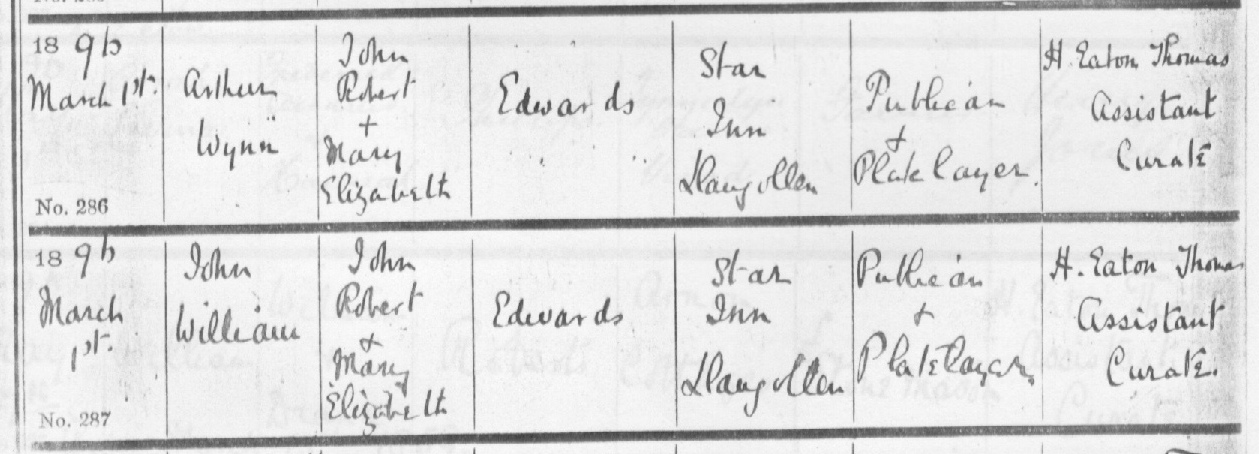 1895
March 1st.
No. 286
Arthur
Wynn
John
Robert
+
Mary
Elizabeth
Edwards
Star
Inn
Llangollen
Publican
+
Platelayer.
H. Eaton Thomas
Assistant
Curate
1895
March
1st.
No. 287
John
William
John
Robert
+
Mary
Elizabeth
Edwards
Star
Inn
Llangollen
Publican
+
Platelayer
H. Eaton Thomas
Assistant
Curate